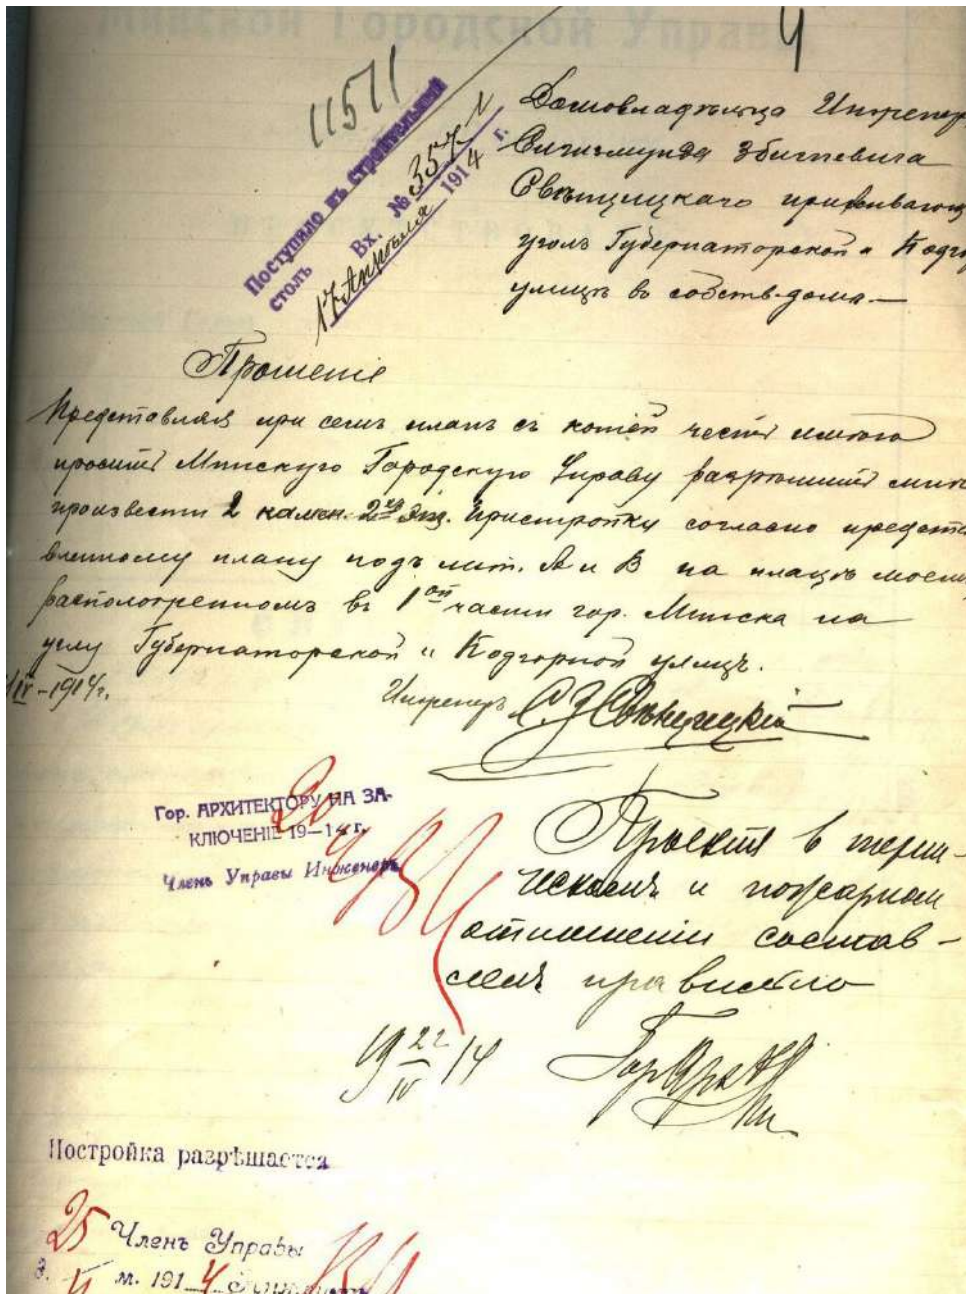 Минской Городской Управ
4
11511
Поступило въ строительный
столъ Вх. № 357
17 Апрѣля 1914 г.
Домовладѣльца Инженер
Сигизмунда Збигневича
Свѣнцицкаго проживающ
уголъ Губернаторской и Подго
улицъ въ собств. домѣ.—
Прошеніе
Представляя при семъ планъ съ копіей честь имѣю
просить Минскую Городскую Управу разрѣшить мнѣ
произвести 2 камен. 2хъ эт. пристройку согласно предста
вленному плану подъ лит. А и В на плацѣ моемъ
расположенномъ въ 1ой части гор. Минска на
углу Губернаторской и Подгорной улицъ.
IV–1914 г.
Инженеръ С. З. Свѣнцицкій
Гор. АРХИТЕКТОРУ НА ЗА-
КЛЮЧЕНІЕ 19—14 г.
20
4
Членъ Управы Инженеръ
Проектъ в техни-
ческомъ и пожарном
отношении состав-
ленъ правильно
19 22/IV 14
Гор. Арх.
Постройка разрѣшается
25 Членъ Управы
м. 1914